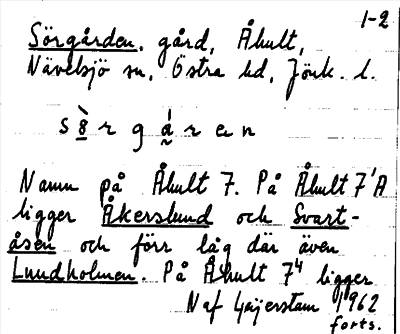 1-2
Sörgården, gård, Åhult,
Nävelsjö sn, Östra hd, Jönk. l.
s 8̱̀ r g á̰ r e n
Namn på Åhult 7. På Åhult 7¹A
ligger Åkerslund och Svart-
åsen och förr låg där även
Lundholmen. På Åhult 7⁴ ligger
N af Geijerstam 1962
forts.